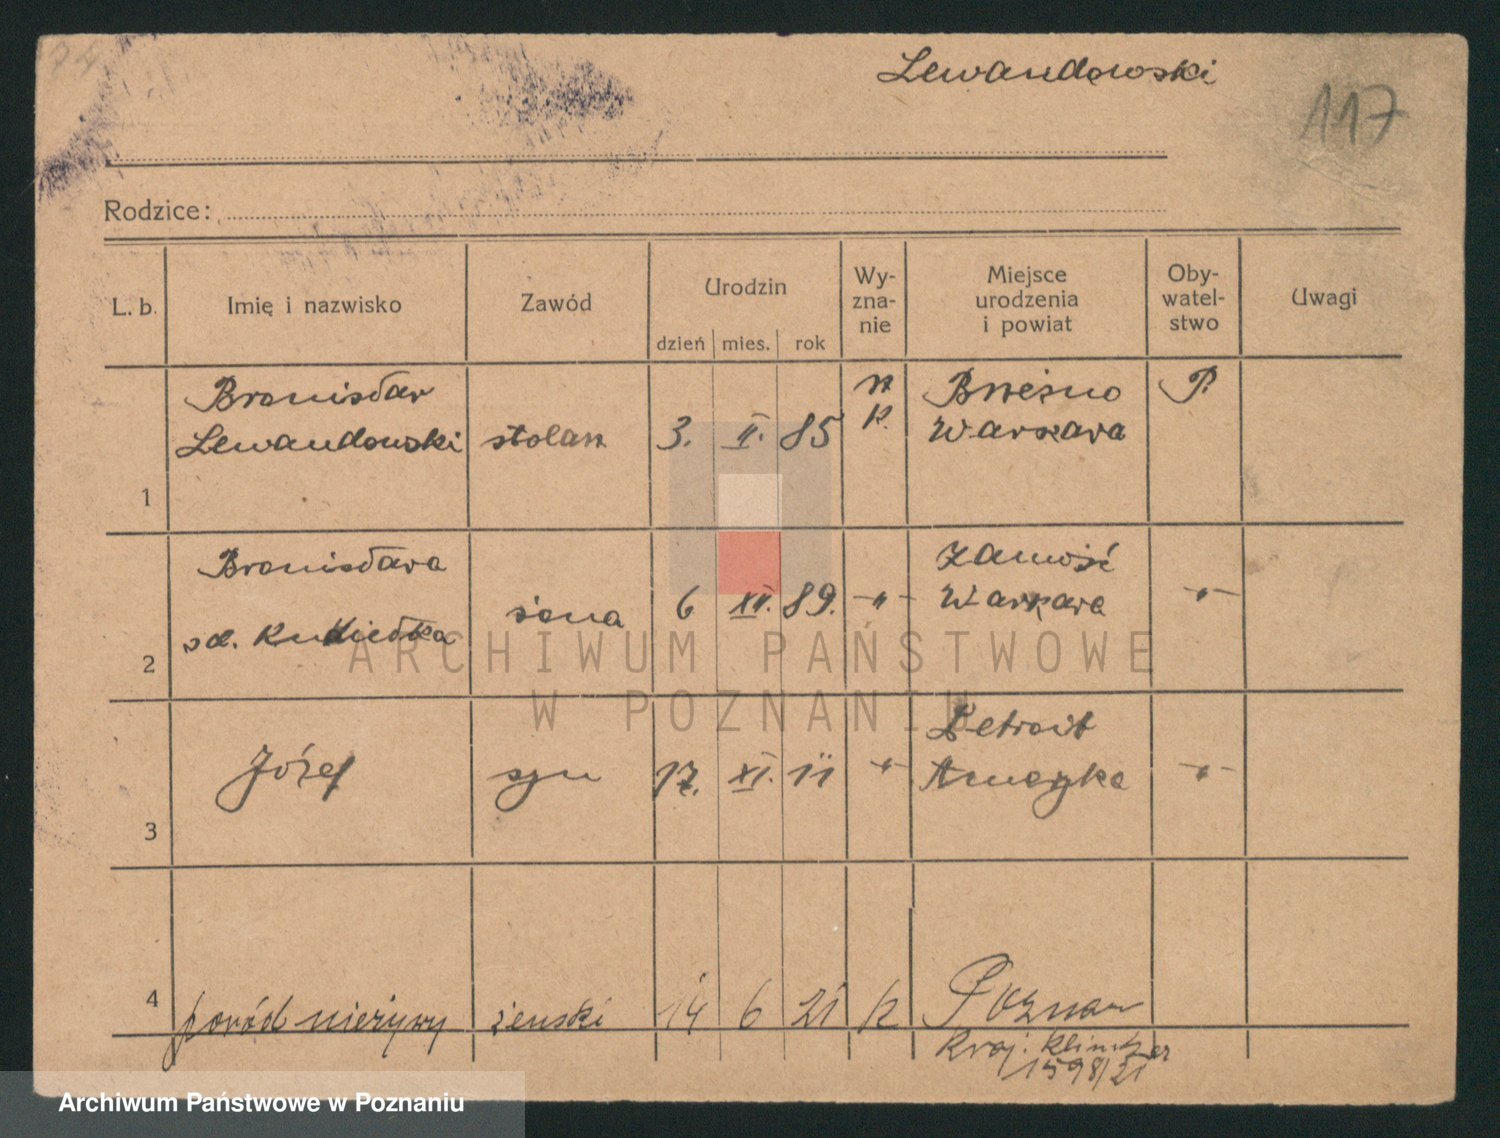 Lewandowski
117
Rodzice:
L. b.
Imię i nazwisko
Zawód
Urodzin
dzień mies. rok
Wy-
zna-
nie
Miejsce
urodzenia
i powiat
Oby-
watel-
stwo
Uwagi
1
Bronisław
Lewandowski
stolarz
3. II. 85
rz
k.
Brzeźno
Warszawa
P.
2
Bronisława
żona
6 XII. 89.
-"-
Zamość
Warszawa
-"-
3
Józef
syn
17. XI. 11
-"-
Detroit
Ameryka
-"-
4
poród nieżywy
żenski
14 6 21
k
Poznań
Kraj. Klinik
1598/21
ARCHIWUM PAŃSTWOWE
W POZNANIU
Archiwum Państwowe w Poznaniu